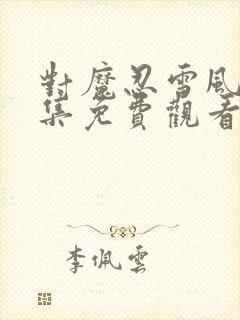 對魔忍雪風
集免費觀看
李佩雲